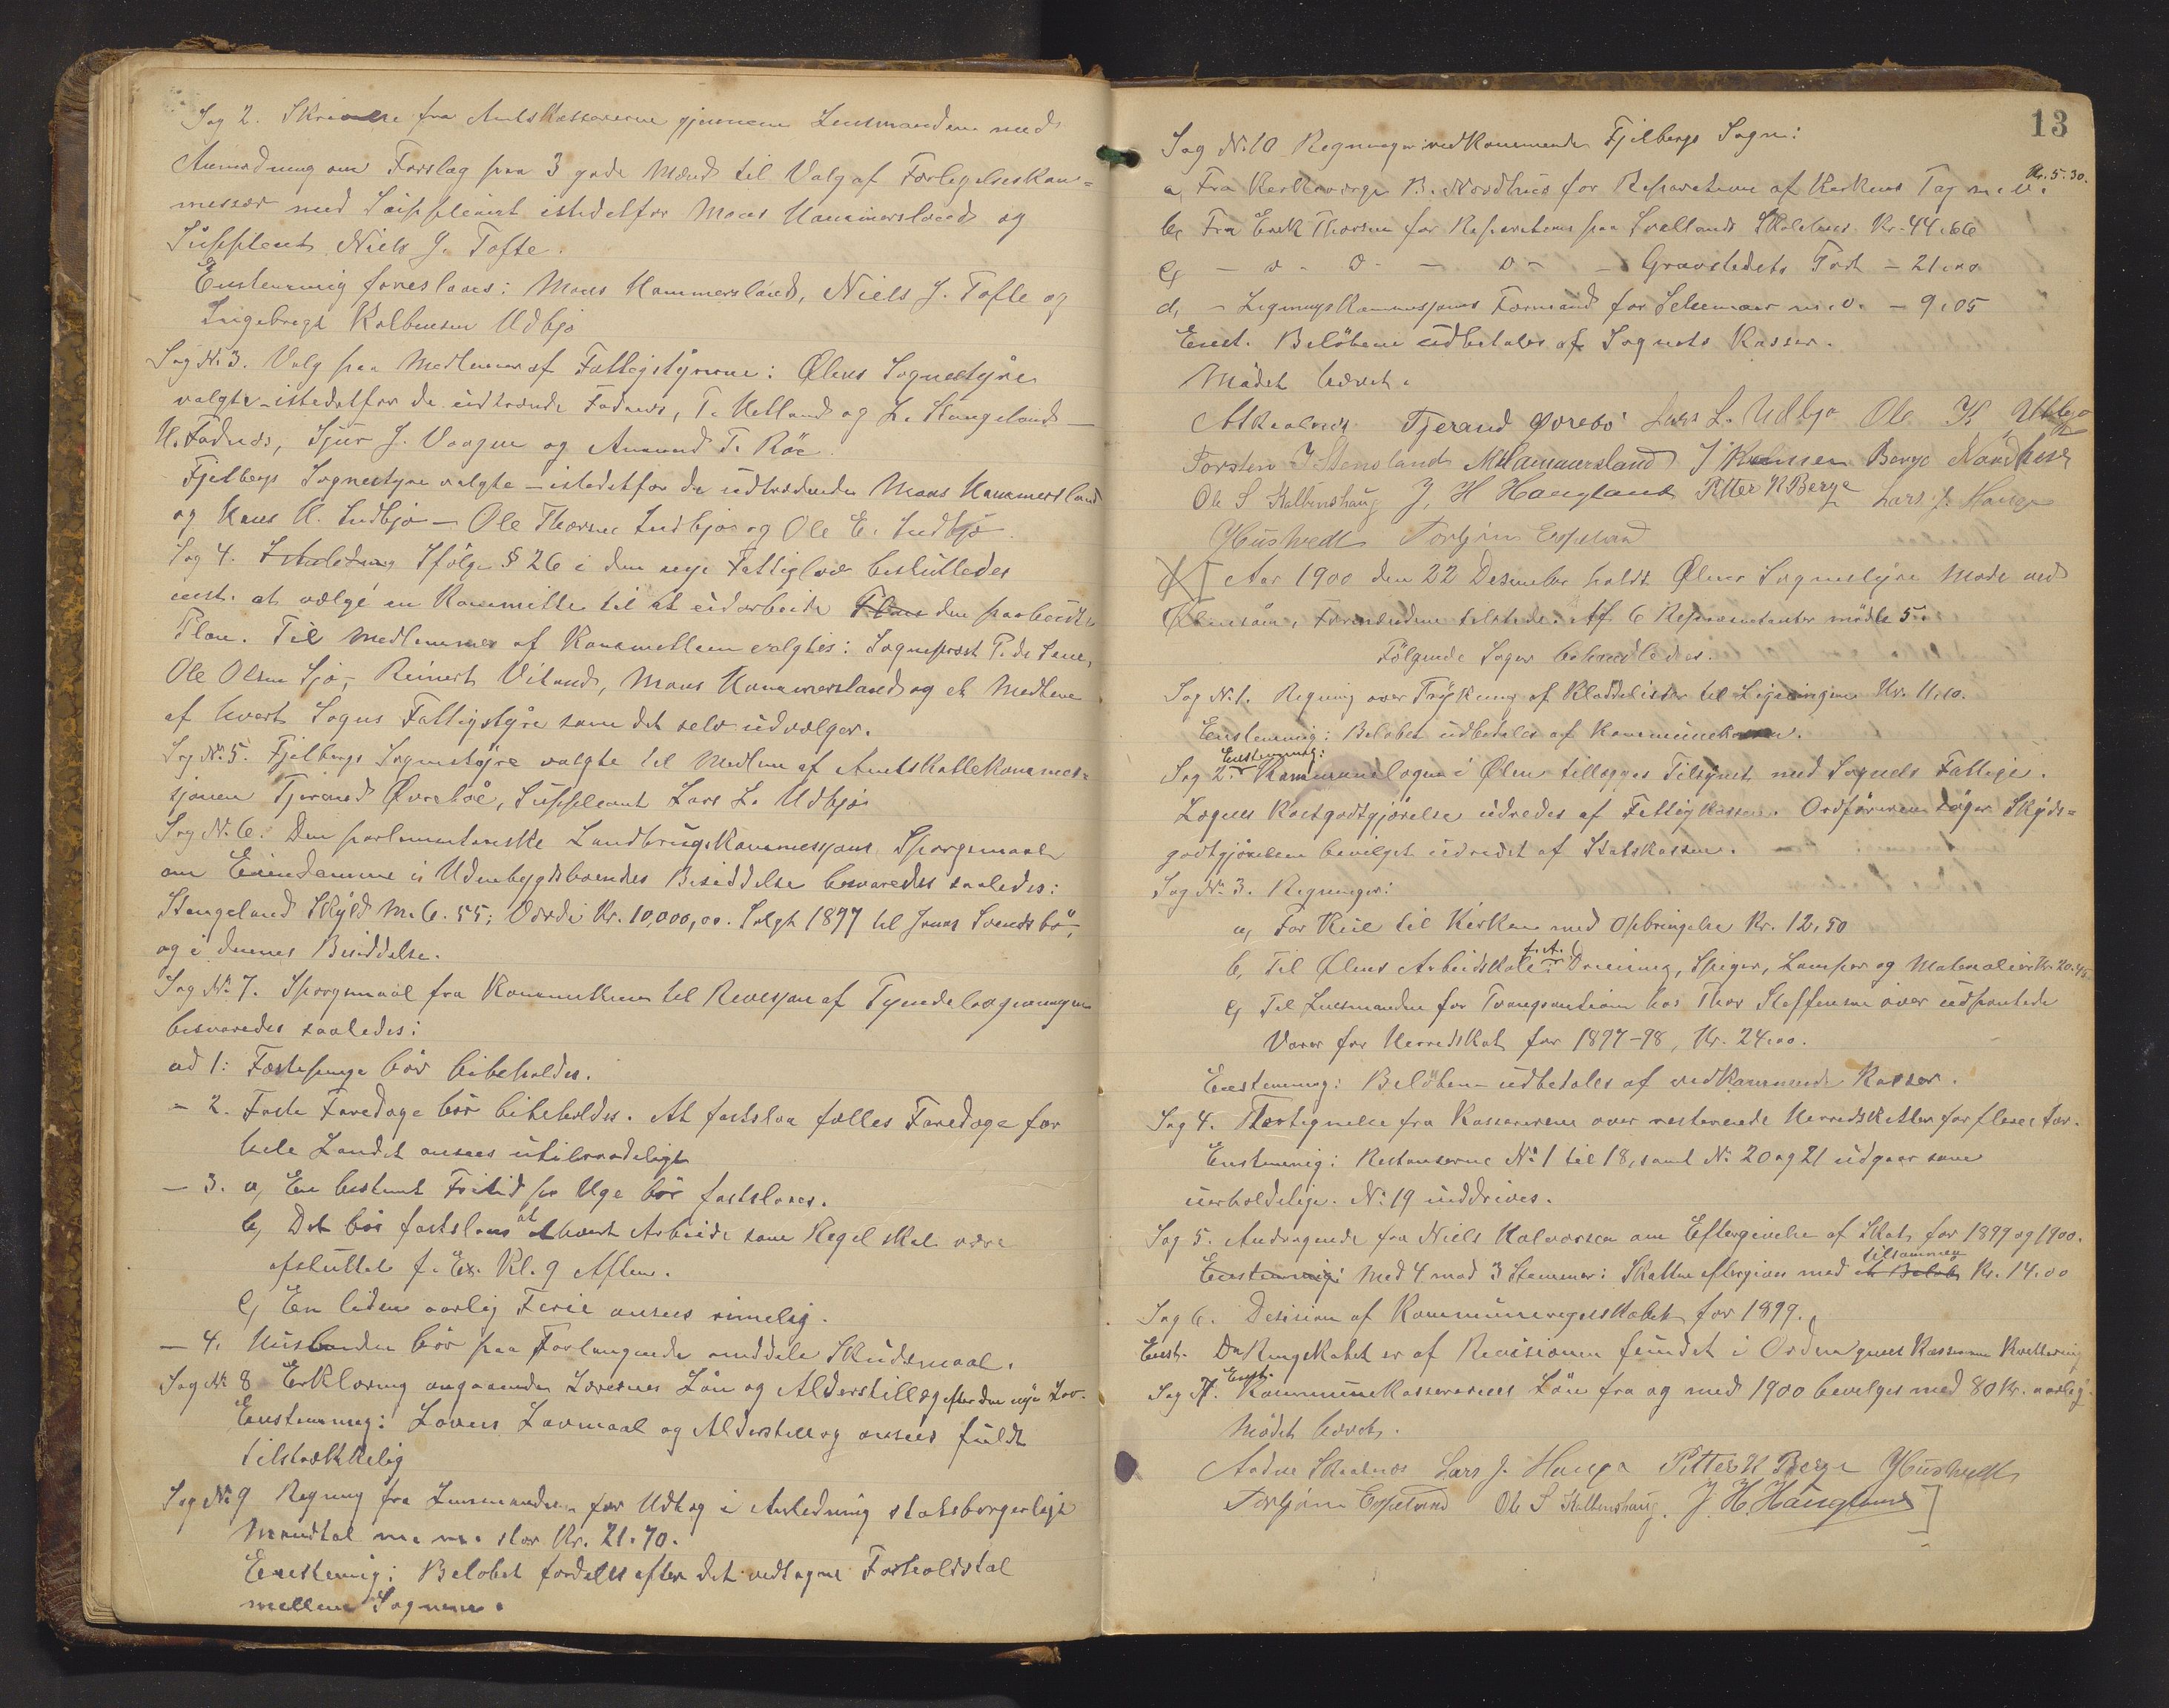 Sag 2. Skrivelse fra Amtskassereren gjennem Lensmanden med
Anmodning om Forslag paa 3 gode Mænd til Valg af Forligelseskom=
missær med Suppleant istedetfor Mons Hammersland og
Suppleant Niels J. Tofte.
Enstemmig foreslaaes: Mons Hammersland, Niels J. Tofte og
Ingebregt Kolbensen Udbjo
Sag N. 3. Valg paa Medlemmer af Fattigstyrerne: Ølens Sognestyre
valgte - istedetfor de udtrædende Fadnes, T. Hetland og L. Stangeland -
H. Fadnes, Sjur J. Vaagen og Amund T. Röe.
Fjelbergs Sognestyre valgte - istedetfor de udtrædende Mons Hammersland
og Hans H. Indbjo - Ole Thorsen Indbjo og Ole E. Indbjo.
Sag 4. Ifölge § 26 i den nye Fattiglov besluttedes
enst. at vælge en Kommitte til at udarbeide Plan den paabudte
Plan. Til Medlemmer af Kommitteen valgtes: Sogneprest P. de Seue,
Ole Olsen Sjo, Reinert Viland, Mons Hammersland og et Medlem
af hvert Sogns Fattigstyre som det selv udvælger.
Sag No 5. Fjelbergs Sognestyre valgte til Medlem af Amtsskattekommis=
sjonen Tjerand Øvreböe, Suppleant Lars L. Udbjo
Sag N. 6. Den parlamentariske Landbrugskommissjons Spørgsmaal
om Eiendomme i Udenbygdsboendes Besiddelse besvaredes saaledes:
Stangeland Skyld M. 6.55; Værdi Kr. 10,000,00. Solgt 1897 til Jonas Svendsbö,
og i dennes Besiddelse.
Sag No 7. Spørgsmaal fra Kommitteen til Revisjon af Tyendelovgivningen
besvaredes saaledes:
ad 1: Fæstepenge bör bibeholdes.
- 2. Faste Faredage bör bibeholdes. At fastslaa fælles Faredage for
hele Landet ansees utilraadeligt
- 3. a, En bestemt Fritid pr Uge bör fastslaaes.
b, Det bör fastslaaes at hvert Arbeide som Regel skal være
afsluttet f. Ex. Kl. 9 Aften.
c, En liden aarlig Ferie ansees rimelig.
- 4. Husbonden bör paa Forlangende meddele Skudsmaal.
Sag No 8 Erklæring angaaende Lærernes Lön og Alderstillæg efter den nye Lov.
Enstemmig: Lovens Lavmaal og Alderstillæg ansees fuldt
tilstrækkelig
Sag No 9 Regning fra Lensmanden for Udtog i Anledning statsborgerlige
Mandtal m. m. stor Kr. 21.70.
Enstemmig: Belobet fordeles efter det vedtagne Forholdstal
mellem Sognene.
13
Sag N. 10 Regninger vedkommende Fjelbergs Sogn:
a, Fra Kirkeværge B. Nordhus for Reparation af Kirkens Tag m. v. Kr. 5.30.
b, Fra Erik Thorsen for Reparation paa Svellands Skolehus Kr. 44.66
c, - o - o - - o - - Gravstedets Port - 21.00
d, - Ligningskommissjons Formand for Schemaer m. v. - 9,05
Enst. Belöbene udbetales af Sognets Kasser.
Mödet hævet.
A Skaalnes Tjerand Øvrebö Lars L. Udbjo Ole K Udbjo
Torsten J Stensland M Hammersland J Knutsen Berge Nordhus
Ole S Kalbenshaug J. H Haugland Pitter K Berge Lars J. Hauge
Huswedt Torbjörn Espeland
Aar 1900 den 22 Desember holdt Ølens Sognestyre Møde ved
Ølensöen, Formanden tilstede. Af 6 Repræsentanter mödte 5.
Fölgende Sager behandledes.
Sag N. 1. Regning over Trykning af Kladdelister til Ligningen Kr. 11.10.
Enstemmig: Belobet udbetales af Kommunekassen.
Enstemmig:
Sag 2. Kommunelægen i Ølen tillægges Tilsynet med Sognets Fattige.
Lægens Kostgodtgjörelse udredes af Fattigkassen. Ordföreren söger Skyds=
godtgjörelsen bevilget udredet af Statskassen.
Sag No 3. Regninger:
a, For Kul til Kirken med Opbringelse Kr. 12,50
b, Til Ølens Arbeidsskole f. A. Dreining, Spiger, Lamper og Materialier Kr. 20.45
c, Til Lensmanden for Tvangsauktion hos Thor Steffensen over udpantede
Varer for Herredskat for 1897-98, Kr. 24.00.
Enstemmig: Belöbene udbetales af vedkommende Kasser.
Sag 4. Fortegnelse fra Kassereren over resterende Herredskatter for flere Aar.
Enstemmig: Restanserne No 1 til 18, samt N. 20 og 21 udgaar som
uerholdelige. N. 19 inddrives.
Sag 5. Andragende fra Niels Halvorsen om Eftergivelse af Skat for 1899 og 1900.
Enstemmig: Med 4 mod 3 Stemmer: Skatten eftergives med et Belöb tilsammen Kr. 14.00
Sag 6. Desision af Kommuneregnskabet for 1899.
Enst. Da Regnskabet er af Revisionen fundet i Orden gives Kassereren Kvittering
Enst.
Sag 7. Kommunekassererens Lön fra og med 1900 bevilges med 80 Kr. aarlig.
Mödet hævet.
Aadne Skaalnes Lars J. Hauge Pitter K Berge Huswedt
Torbjörn Espeland Ole S Kalbenshaug. J. H. Haugland